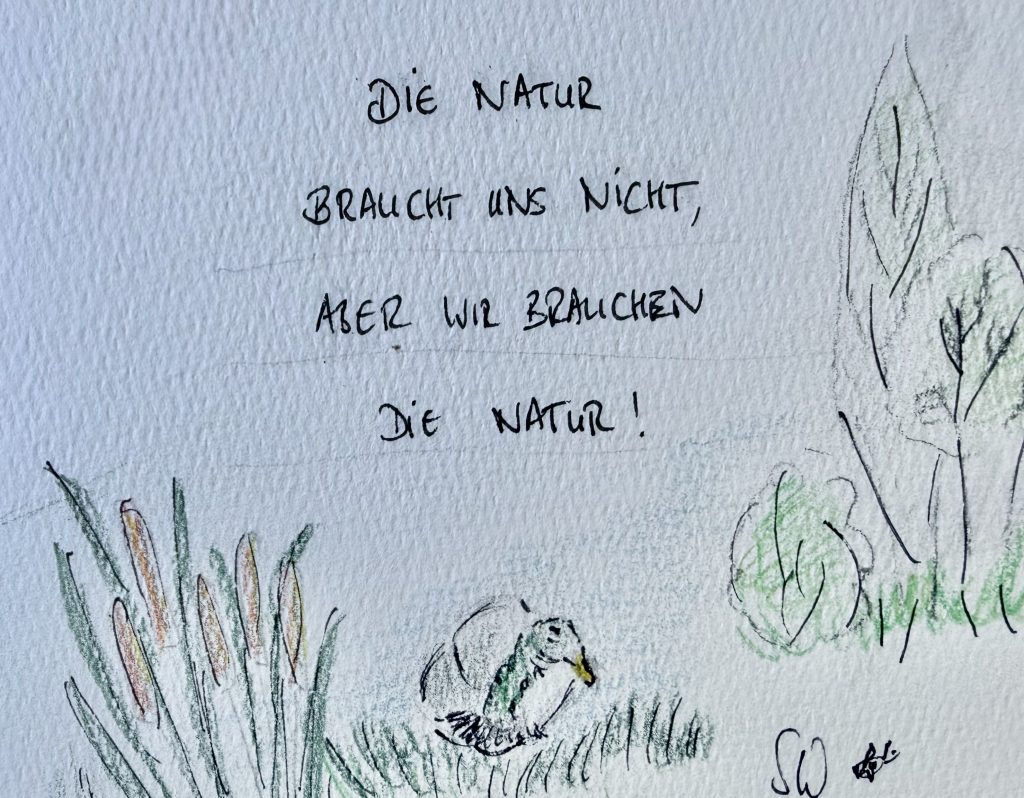 DIE NATUR
BRAUCHT UNS NICHT,
ABER WIR BRAUCHEN
DIE NATUR!
SW